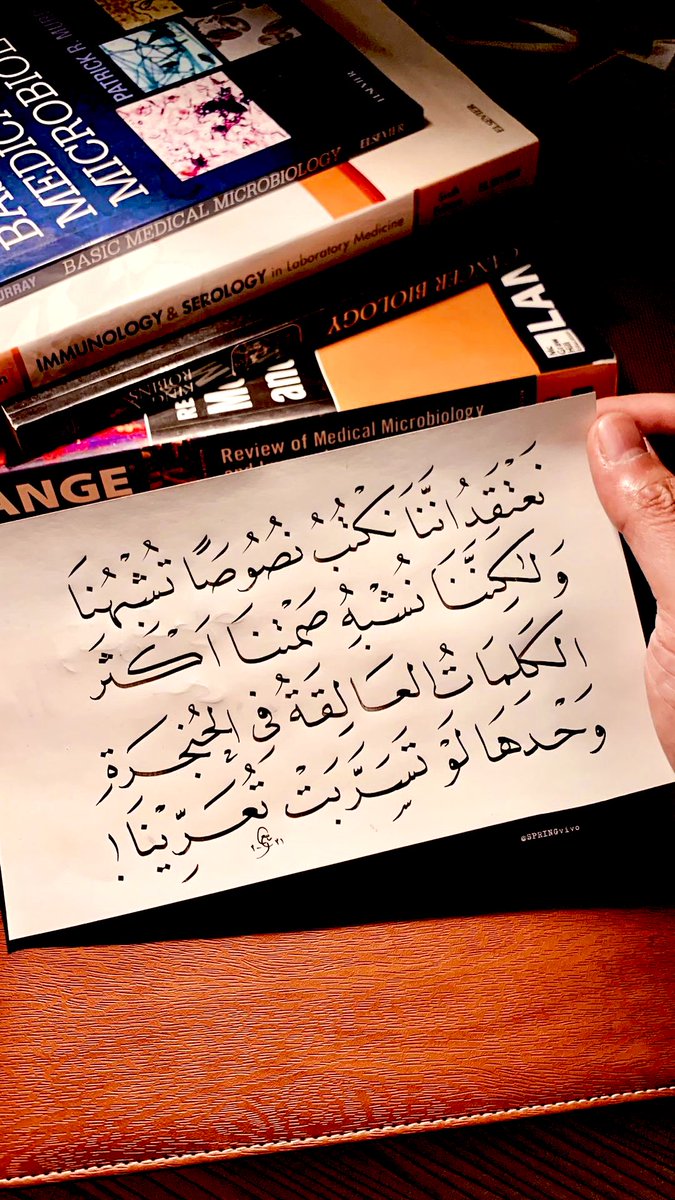 BASIC MEDICAL MICROBIOLOGY
PATRICK R. MURRAY
ELSEVIER
MURRAY BASIC MEDICAL MICROBIOLOGY
ELSEVIER
IMMUNOLOGY & SEROLOGY in Laboratory Medicine
CANCER BIOLOGY
LAN
ROBINS
RE
and
Review of Medical Microbiology
and
ANGE
نَعْتَقِدُ انَّنَا نَكْتُبُ نُصُوُصًا تُشْبِهُنَا
وَلٰكِنَّنَا نُشْبِهُ صَمْتَنَا اَكْثَرَ
الكَلِمَاتُ العَالِقَةُ فِى الحُنْجَرَةِ
وَحْدَهَا لَوْ تَسَرَّبَتْ تُعَرِّيْنَا !
@SPRINGvivo